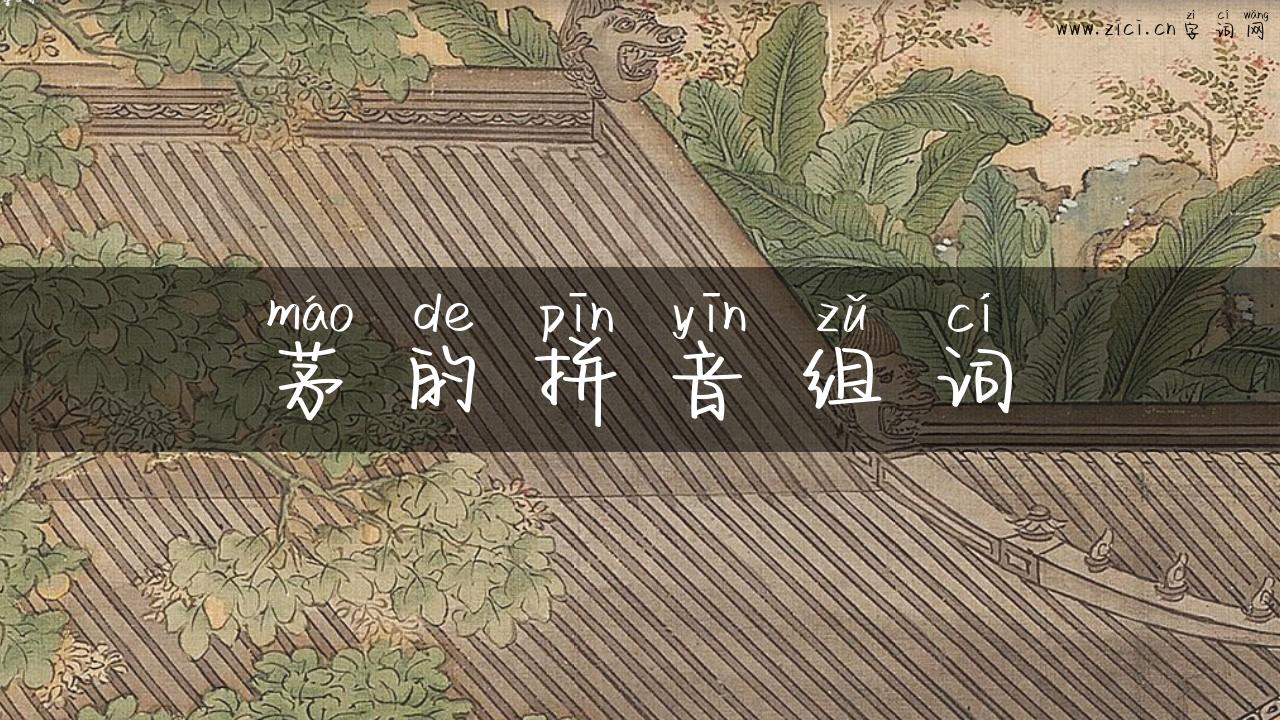 zì cí wǎng
www.zici.cn 字词网
máo de pīn yīn zǔ cí
茅的拼音组词